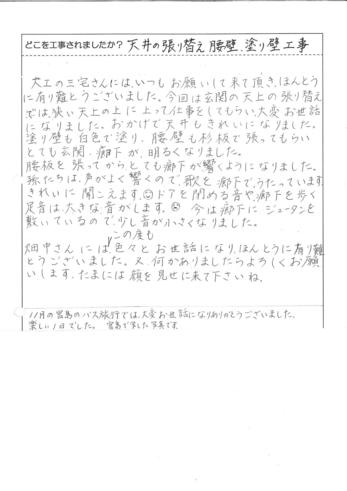 どこを工事されましたか? 天井の張り替え 腰壁、塗り壁工事
大工の三宅さんには、いつもお願いして来て頂き、ほんとう
に有り難とうございました。今回は玄関の天上の張り替え
では、狭い天上の上に上って仕事をしてもらい、大変お世話
になりました。おかげで天井もきれいになりました。
塗り壁も白色で塗り、腰壁も杉板で張ってもらい
とても玄関、廊下が、明るくなりました。
腰板を張ってからとても廊下が響くようになりました。
孫たちは、声がよく響くので、歌を廊下で、うたっています
きれいに聞こえます。ドアを閉める音や、廊下を歩く
足音は、大きな音がします。今は廊下にジュータンを
敷いているので、少し音が小さくなりました。
この度も
畑中さんには、色々とお世話になり、ほんとうに有り難
とうございました。又、何かありましたらよろしくお願
いします。たまには顔を見せに来て下さいね。
11月の宮島のバス旅行では、大変お世話になりありがとうございました。
楽しい1日でした。宮島で写した写真です。